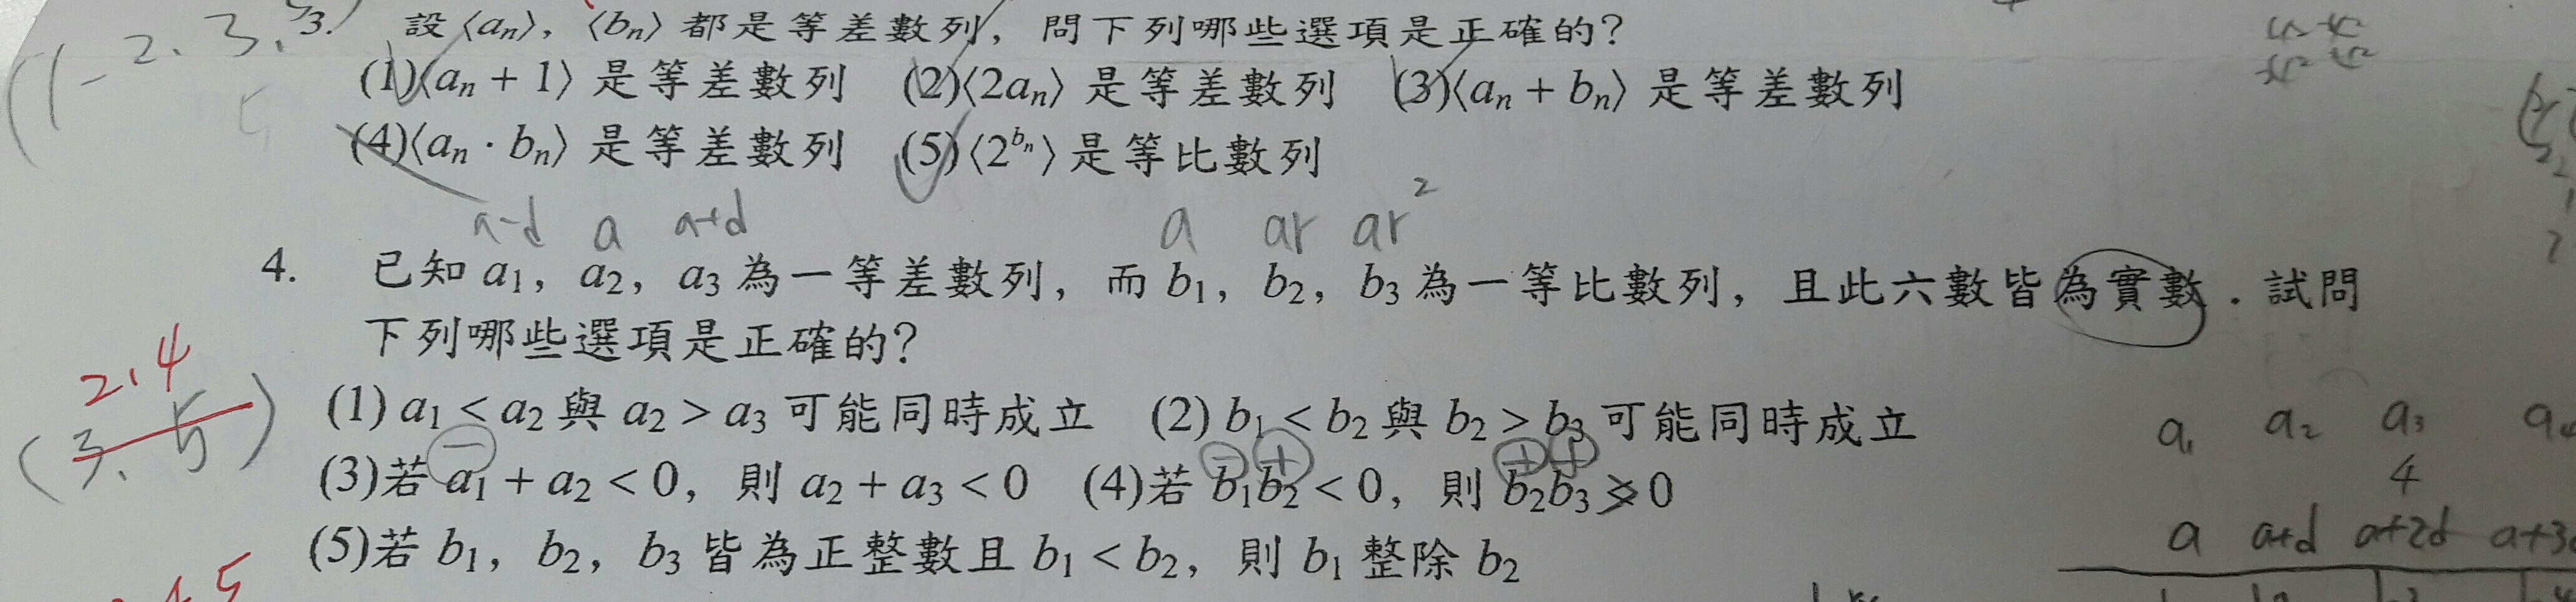 (1、2、3、5)
3. 設〈aₙ〉，〈bₙ〉都是等差數列，問下列哪些選項是正確的？
(1)〈aₙ + 1〉是等差數列 (2)〈2aₙ〉是等差數列 (3)〈aₙ + bₙ〉是等差數列
(4)〈aₙ · bₙ〉是等差數列 (5)〈2^{bₙ}〉是等比數列
a-d a a+d a ar ar²
4. 已知 a₁，a₂，a₃ 為一等差數列，而 b₁，b₂，b₃ 為一等比數列，且此六數皆為實數．試問
下列哪些選項是正確的？
2、4
(3、5)
(1) a₁ < a₂ 與 a₂ > a₃ 可能同時成立 (2) b₁ < b₂ 與 b₂ > b₃ 可能同時成立
− − + + +
(3)若 a₁ + a₂ < 0，則 a₂ + a₃ < 0 (4)若 b₁b₂ < 0，則 b₂b₃ < 0
(5)若 b₁，b₂，b₃ 皆為正整數且 b₁ < b₂，則 b₁ 整除 b₂
a₁ a₂ a₃ a₄
4
a a+d a+2d a+3d